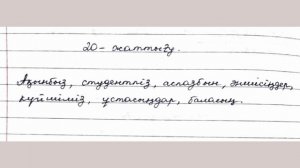 20 - жаттығу.
Ақынбыз, студентпіз, аспазбын, әншісіңдер,
күйшіміз, ұстасыңдар, баласың.